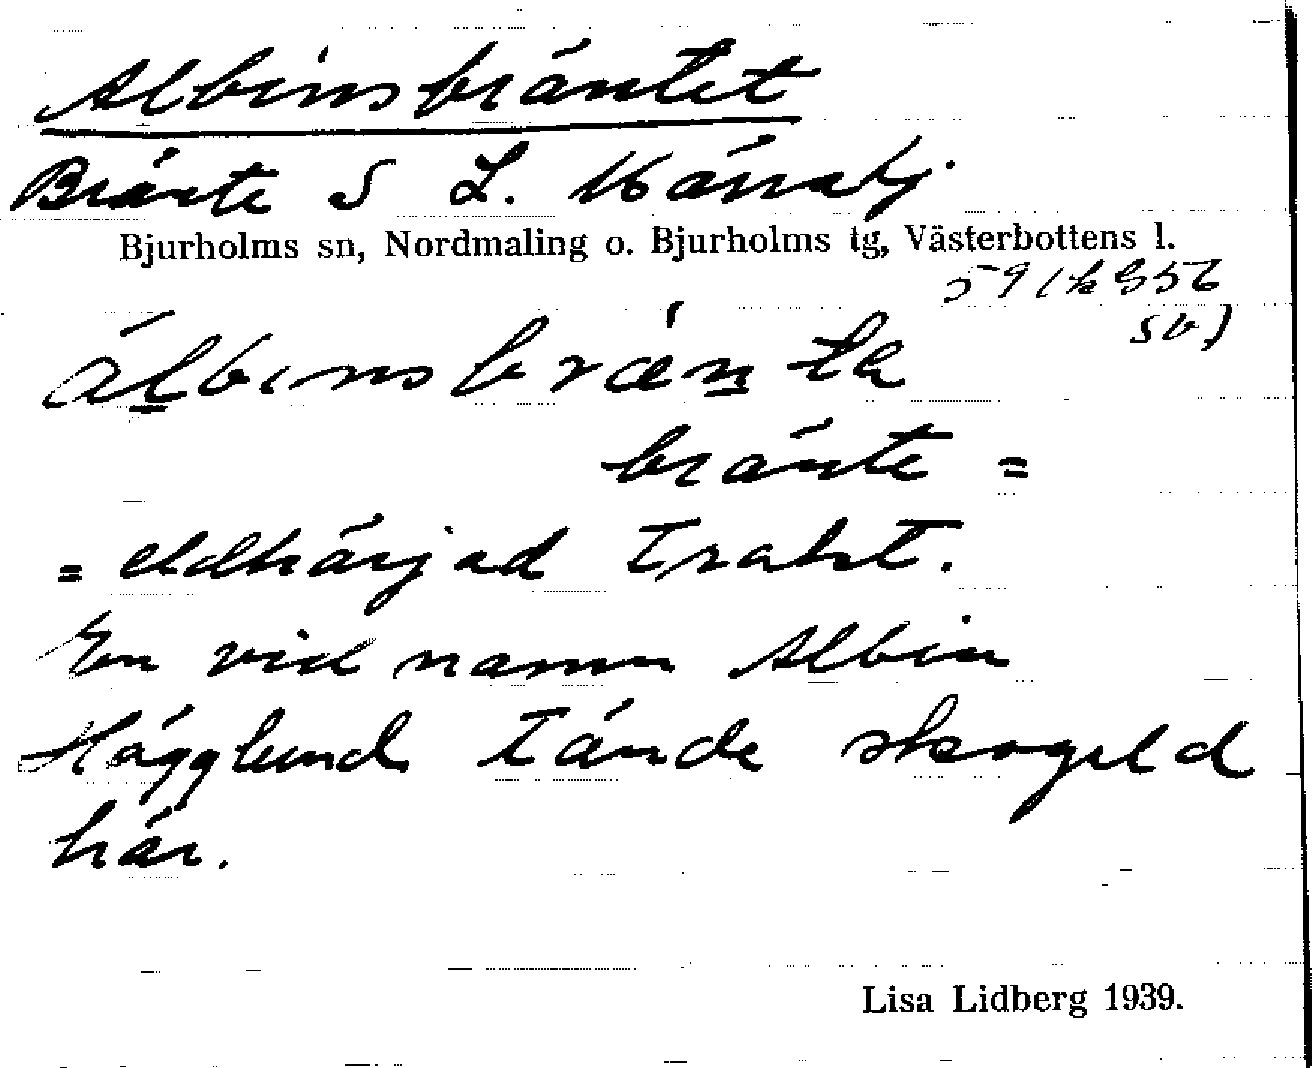 Albinsbräntet
Bränte S L.
Bjurholms sn, Nordmaling o. Bjurholms tg, Västerbottens l.
álbinsbræn̲ta
bränte =
= eldhärjad trakt.
En vid namn Albin
Hägglund tände skogeld
här.
Lisa Lidberg 1939.